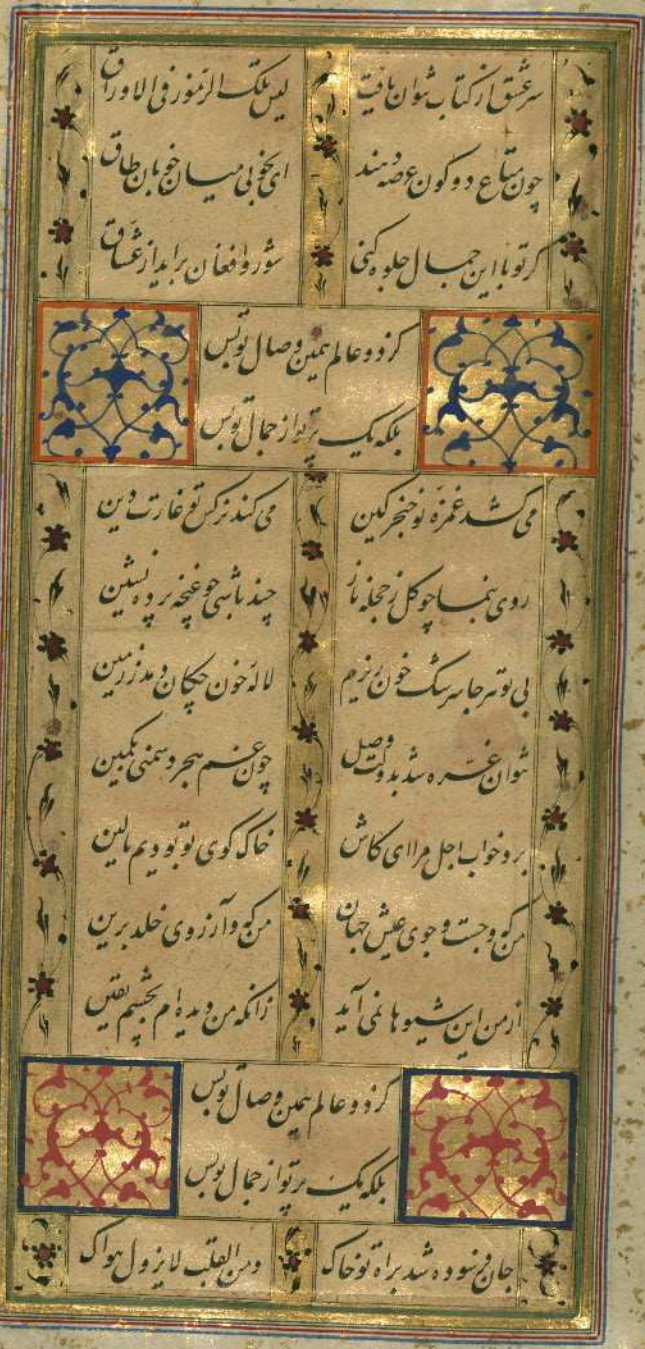 سر عشق از کتاب نتوان یافت لیس تلک الرموز فی الاوراق
چون متاع دو کون عرضه دهند ای بخوبی میان خوبان طاق
کر تو با این جمال جلوه کنی شور و افغان براید از عشاق
کز دو عالم همین وصال تو بس
بلکه یک پرتو از جمال تو بس
می کشد غمزه تو خنجر کین می کند نرکس تو غارت دین
روی بنما چو کل ز حجله ناز چند باشی چو غنچه پرده نشین
بی تو هر جا سرشک خون ریزم لاله خون چکان دمد ز زمین
نتوان غره شد بدولت وصل چون غم هجر دشمنی بکمین
برد خواب اجل مرا ای کاش خاک کوی تو بودیم بالین
من که و جست و جوی عیش جهان من که و آرزوی خلد برین
از من این شیوها نمی آید زانکه من دیده ام بچشم یقین
کز دو عالم همین وصال تو بس
بلکه یک پرتو از جمال تو بس
جان فرسوده شد براه تو خاک ومن القلب لا یزول هواک